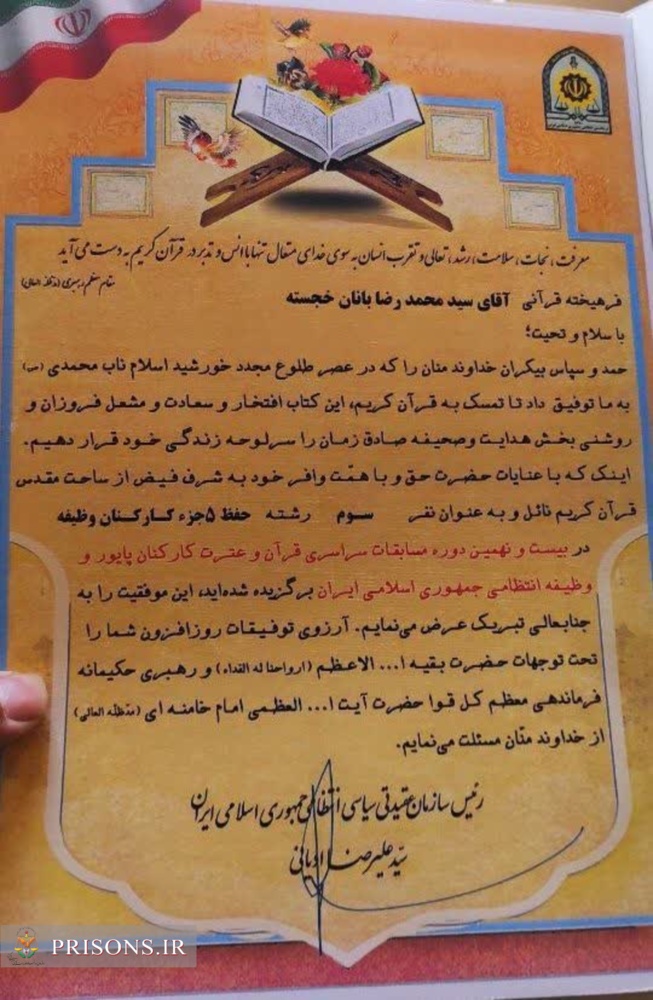 معرفت، نجات، سلامت، رشد، تعالی و تقرب انسان به سوی خدای متعال تنها با انس و تدبر در قرآن کریم به دست می آید
مقام معظم رهبری (مدظله العالی)
فرهیخته قرآنی آقای سید محمد رضا بانان خجسته
با سلام و تحیت؛
حمد و سپاس بیکران خداوند منان را که در عصر طلوع مجدد خورشید اسلام ناب محمدی (ص)
به ما توفیق داد تا تمسک به قرآن کریم، این کتاب افتخار و سعادت و مشعل فروزان و
روشنی بخش هدایت و صحیفه صادق زمان را سرلوحه زندگی خود قرار دهیم.
اینک که با عنایات حضرت حق و با همّت وافر خود به شرف فیض از ساحت مقدس
قرآن کریم نائل و به عنوان نفر سوم رشته حفظ ۵جزء کارکنان وظیفه
در بیست و نهمین دوره مسابقات سراسری قرآن و عترت کارکنان پایور و
وظیفه انتظامی جمهوری اسلامی ایران برگزیده شده‌اید، این موفقیت را به
جنابعالی تبریک عرض می‌نمایم. آرزوی توفیقات روزافزون شما را
تحت توجهات حضرت بقیه ا... الاعظم (ارواحنا له الفداء) و رهبری حکیمانه
فرماندهی معظم کل قوا حضرت آیت ا... العظمی امام خامنه ای (مدظلّه العالی)
از خداوند منّان مسئلت می‌نمایم.
رئیس سازمان عقیدتی سیاسی انتظامی جمهوری اسلامی ایران
سیّد علیرضا ادیانی
PRISONS.IR